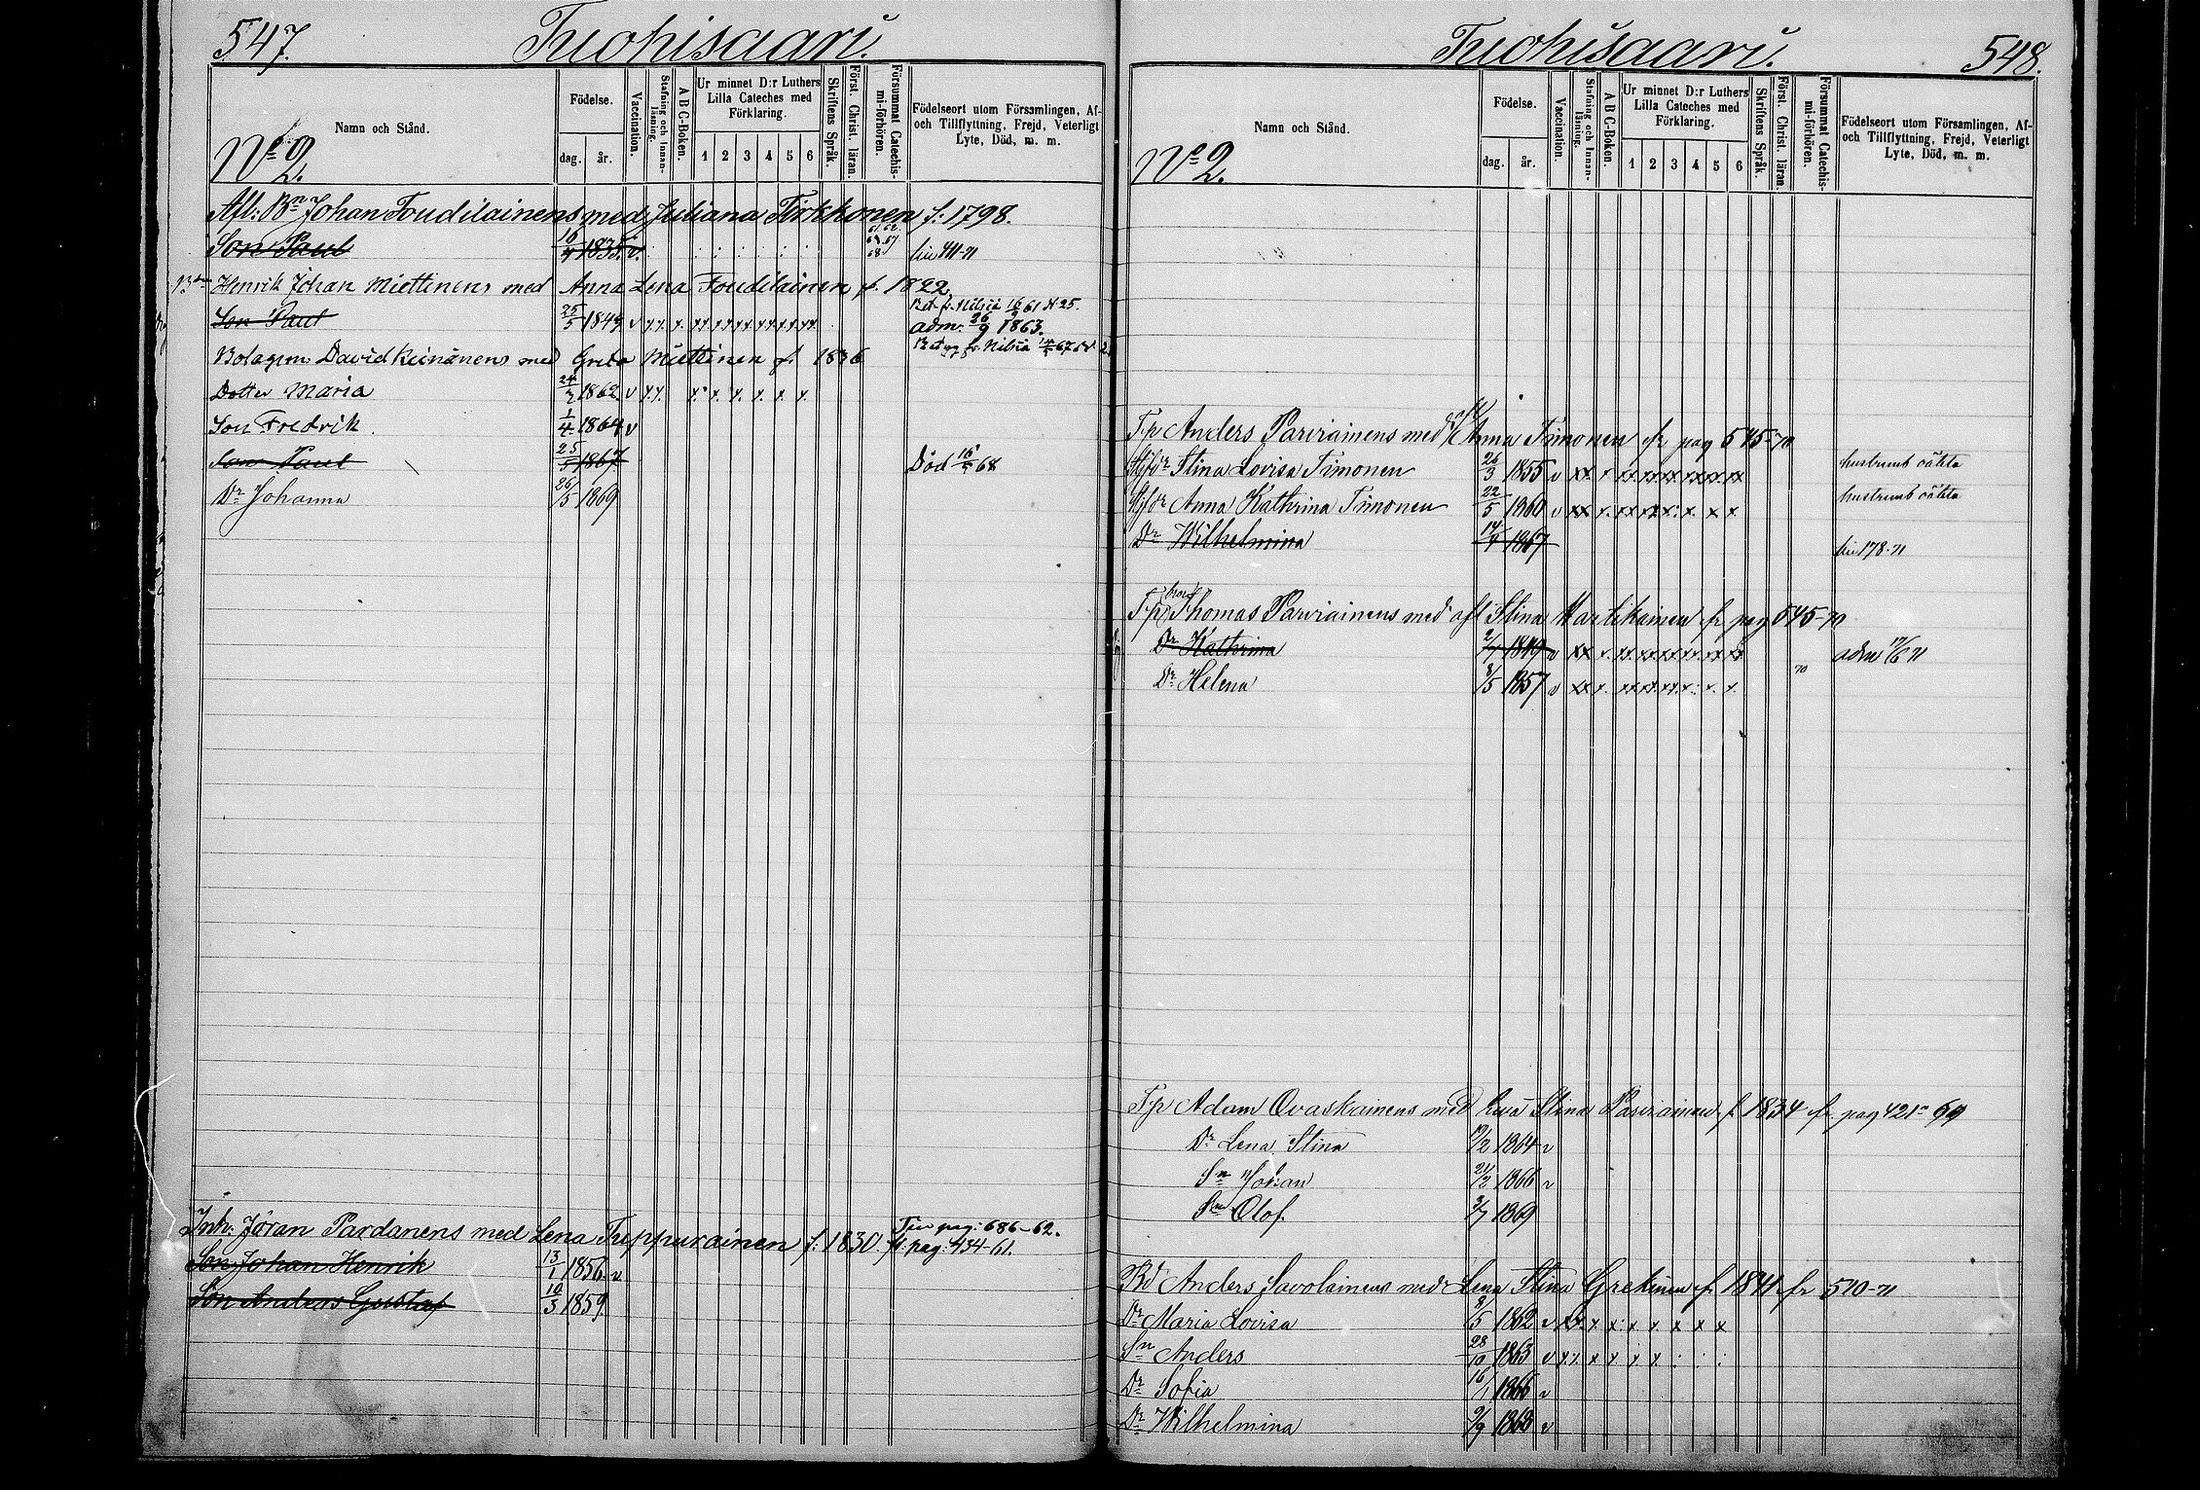 547.
Tuohisaari.
Namn och Stånd.
Födelse.
dag.
år.
Vaccination.
Stafning och Innan-läsning.
A B C-Boken.
Ur minnet D:r Luthers
Lilla Cateches med
Förklaring.
1 2 3 4 5 6
Skriftens Språk.
Först. Christ. läran.
Försummat Catechis-mi-förhören.
Födelseort utom Församlingen, Af-
och Tillflyttning, Frejd, Veterligt
Lyte, Död, m. m.
No 2.
Afl: Bn Johan Toudilainens med Juliana Tirkkonen f: 1798.
Son Paul 1835 v.
Henrik Johan Miettinens med Anna Lena Toudilainen f. 1822
Bet. fr. Nilsiä 61 N. 25.
Son Paul 25/5 1849 v x x x xx xx xx xx xx xx adm: 26/9 1863.
Bolagsm David Keinänens med Greta Miettinen f. 1836
Dotter Maria 1862 v x x x x x x x x
Son Fredrik 1/4 1864 v
Son Paul 25/5 1867 Död 68
Dr Johanna 26/5 1869
Inh: Jöran Pardanens med Lena Tuppurainen f: 1830. fr. pag: 434-61.
pag: 686-62.
Son Johan Henrik 13/1 1856 v
Son Anders Gustaf 10/3 1859.
Tuohisaari.
548.
Namn och Stånd.
Födelse.
dag.
år.
Vaccination.
Stafning och Innan-läsning.
A B C-Boken.
Ur minnet D:r Luthers
Lilla Cateches med
Förklaring.
1 2 3 4 5 6
Skriftens Språk.
Först. Christ. läran.
Försummat Catechis-mi-förhören.
Födelseort utom Församlingen, Af-
och Tillflyttning, Frejd, Veterligt
Lyte, Död, m. m.
No 2.
Tp Anders Parviainens med Anna Timonen fr. pag 545-70
Stina Lovisa Timonen 26/3 1855 v xx x xx xx xx xx xx xx hustruns oäkta
Anna Kathrina Timonen 22/5 1860 v xx x xx xx x x x x hustruns oäkta
Dr Wilhelmina 1867 178-71
Tp Thomas Parviainens med afl Stina Martikainen fr pag 545-70
Dr Kathrina 1849 v xx x xx xx xx xx xx xx adm 71
Dr Helena 8/5 1857 v xx x xx xx xx x x x 70
Tp Adam Ovaskainens med Eva Stina Parviainen f. 1834 fr pag 421-69
Dr Lena Stina 19/2 1864 v
Sn Johan 21/2 1866 v
Sn Olof 3/7 1869
Anders Savolainens med Lena Stina Grekinen f. 1841 fr 510-71
Dr Maria Lovisa 8/5 1862 v xx x x x x x x x
Sn Anders 28/10 1863 v xx x x x x
Dr Sofia 16/1 1866 v
Dr Wilhelmina 9/9 1868 v